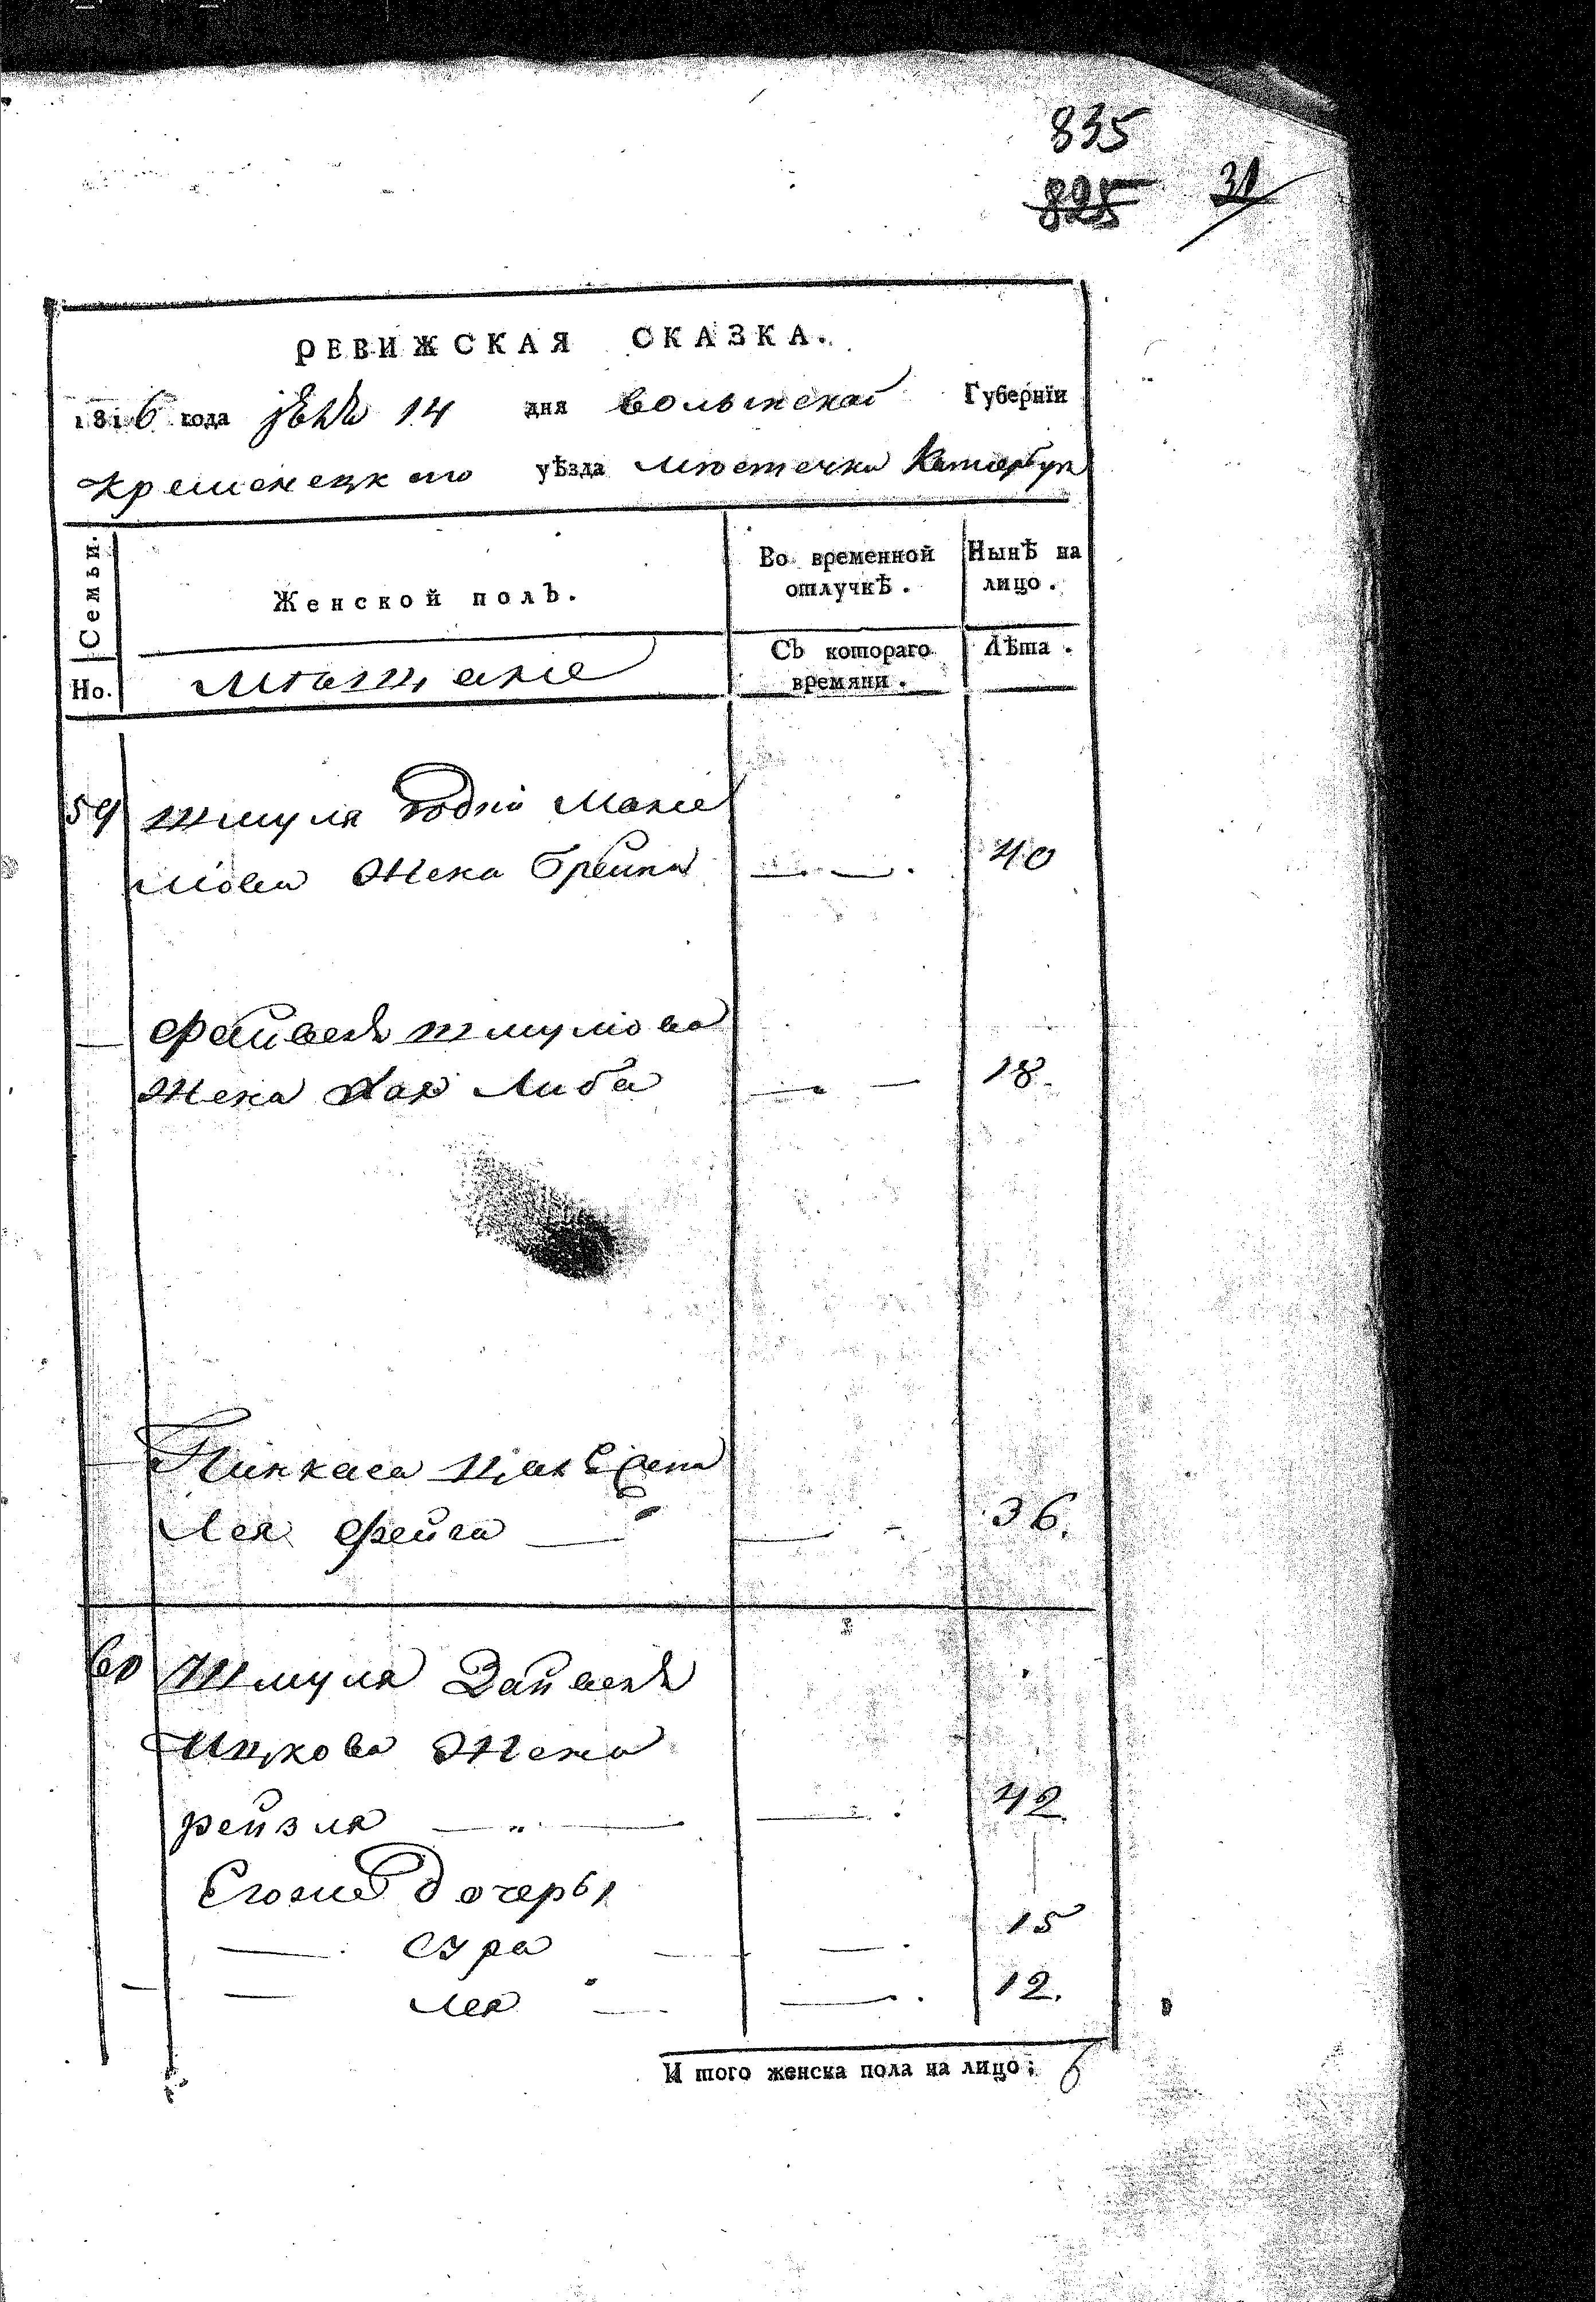 835
825 31
РЕВИЖСКАЯ СКАЗКА.
1816 года 14 дня Волынской Губерніи
Кременецкаго уѣзда мѣстечка Катербурга
Семьи.
Женской полъ.
Во временной отлучкѣ.
Нынѣ на лицо.
Но.
мѣщане
Съ котораго времяни.
Лѣта.
59 Шмуля
жена 40
Файвеля Шмулiова
жена Хая Либа 18
Пинкаса
Лея Фейга 36.
60 Шмуля Зайвеля
Ицкова жена
рейзля 42
Егоже дочеры
сура 15
лея 12.
И того женска пола на лицо: 6